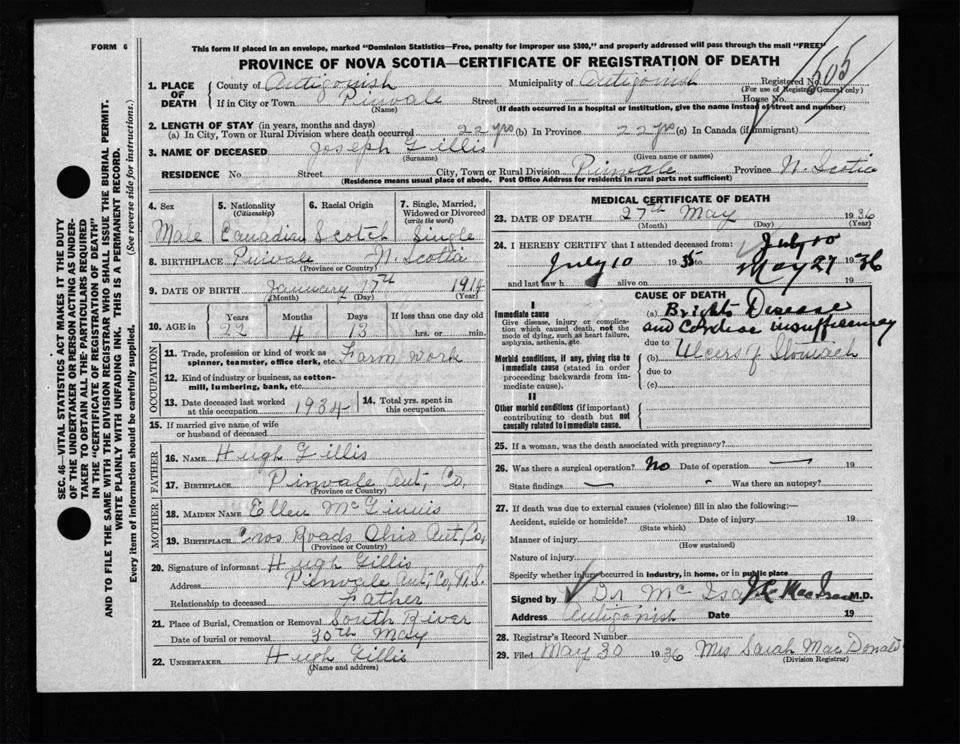 FORM 6
This form if placed in an envelope, marked "Dominion Statistics—Free, penalty for improper use $300," and properly addressed will pass through the mail "FREE"
PROVINCE OF NOVA SCOTIA—CERTIFICATE OF REGISTRATION OF DEATH
505
1. PLACE OF DEATH County of Antigonish Municipality of Antigonish Registered No.
(For use of Registrar General only)
If in City or Town Pinvale Street House No.
(Name) (If death occurred in a hospital or institution, give the name instead of street and number)
2. LENGTH OF STAY (in years, months and days)
(a) In City, Town or Rural Division where death occurred 22 yrs (b) In Province 22 yrs (c) In Canada (if immigrant)
3. NAME OF DECEASED Joseph Gillis
(Surname) (Given name or names)
RESIDENCE No. Street City, Town or Rural Division Pinvale Province N. Scotia
(Residence means usual place of abode. Post Office Address for residents in rural parts not sufficient)
4. Sex 5. Nationality (Citizenship) 6. Racial Origin 7. Single, Married, Widowed or Divorced (write the word)
Male Canadian Scotch Single
8. BIRTHPLACE Pinvale N. Scotia
(Province or Country)
9. DATE OF BIRTH January 17th 1914
(Month) (Day) (Year)
10. AGE in Years Months Days If less than one day old
22 4 13 hrs. or min.
OCCUPATION
11. Trade, profession or kind of work as spinner, teamster, office clerk, etc. Farm work
12. Kind of industry or business, as cotton-mill, lumbering, bank, etc.
13. Date deceased last worked at this occupation 1934 14. Total yrs. spent in this occupation
15. If married give name of wife or husband of deceased
FATHER
16. NAME Hugh Gillis
17. BIRTHPLACE Pinvale Ant, Co,
(Province or Country)
MOTHER
18. MAIDEN NAME Ellen McGinnis
19. BIRTHPLACE Cros Roads Ohio Ant, Co,
(Province or Country)
20. Signature of informant Hugh Gillis
Address Pinvale Ant, Co, N.S.
Relationship to deceased Father
21. Place of Burial, Cremation or Removal South River
Date of burial or removal 30th May
22. UNDERTAKER Hugh Gillis
(Name and address)
MEDICAL CERTIFICATE OF DEATH
23. DATE OF DEATH 27th May 1936
(Month) (Day) (Year)
24. I HEREBY CERTIFY that I attended deceased from: July 10
July 10 1935 to May 27 1936
and last saw h alive on 19
CAUSE OF DEATH
I
Immediate cause
Give disease, injury or complication which caused death, not the mode of dying, such as heart failure, asphyxia, asthenia, etc.
(a) Brights Disease
and Cardiac insufficiency
due to
Morbid conditions, if any, giving rise to immediate cause (stated in order proceeding backwards from immediate cause).
(b) Ulcers of Stomach
due to
(c)
II
Other morbid conditions (if important) contributing to death but not causally related to immediate cause.
25. If a woman, was the death associated with pregnancy?
26. Was there a surgical operation? No Date of operation — 19
State findings — Was there an autopsy?
27. If death was due to external causes (violence) fill in also the following:—
Accident, suicide or homicide? Date of injury 19
(State which)
Manner of injury
(How sustained)
Nature of injury
Specify whether injury occurred in industry, in home, or in public place
Signed by Dr Mc Isa M.D.
Address Antigonish Date 19
28. Registrar's Record Number
29. Filed May 30 1936 Mrs Sarah MacDonald
(Division Registrar)
SEC. 46—VITAL STATISTICS ACT MAKES IT THE DUTY
OF THE UNDERTAKER OR PERSON ACTING AS UNDERTAKER TO OBTAIN ALL THE PARTICULARS REQUIRED
IN THE "CERTIFICATE OF REGISTRATION OF DEATH"
AND TO FILE THE SAME WITH THE DIVISION REGISTRAR WHO SHALL ISSUE THE BURIAL PERMIT.
WRITE PLAINLY WITH UNFADING INK. THIS IS A PERMANENT RECORD.
Every item of information should be carefully supplied. (See reverse side for instructions.)